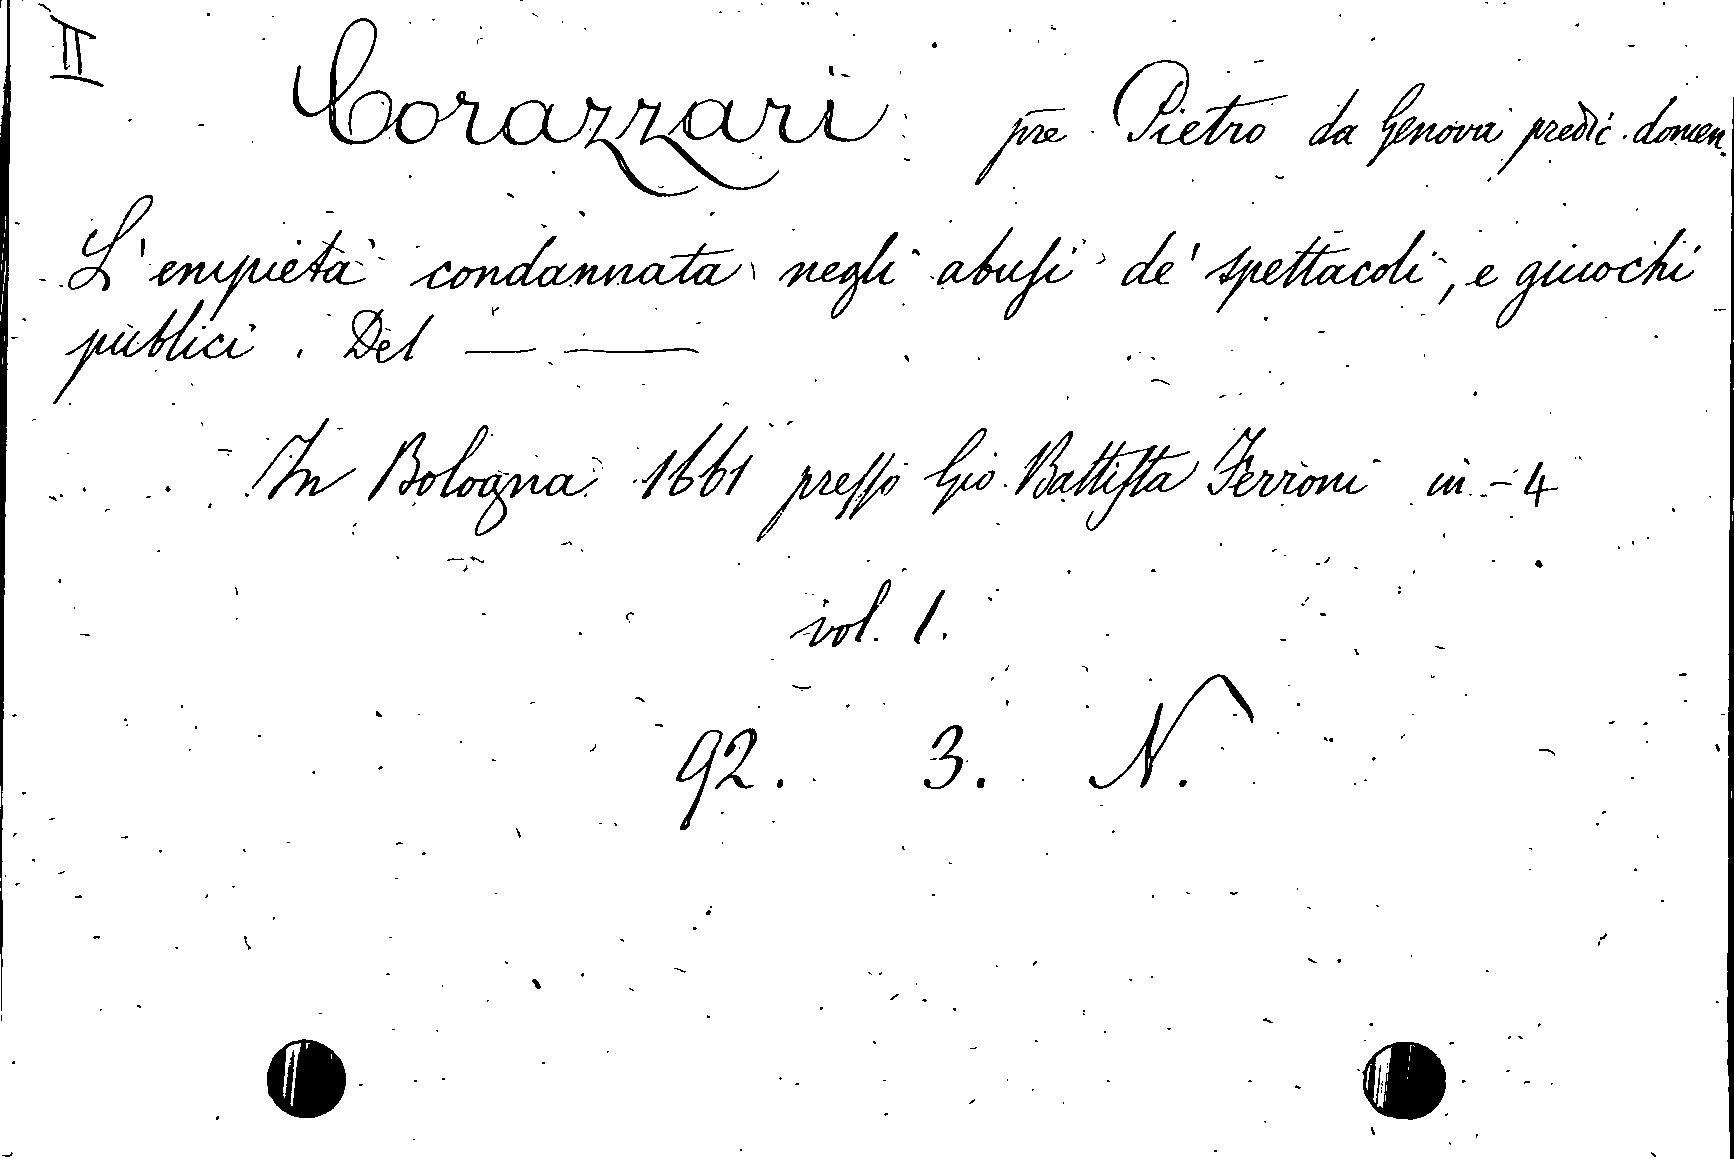 II
Corazzari pre Pietro da Genova predic. domen.
L'empietà condannata negli abusi de' spettacoli, e giuochi
publici. Del — —
In Bologna 1661 presso Gio. Battista Ferroni in-4
vol. 1.
92. 3. N.